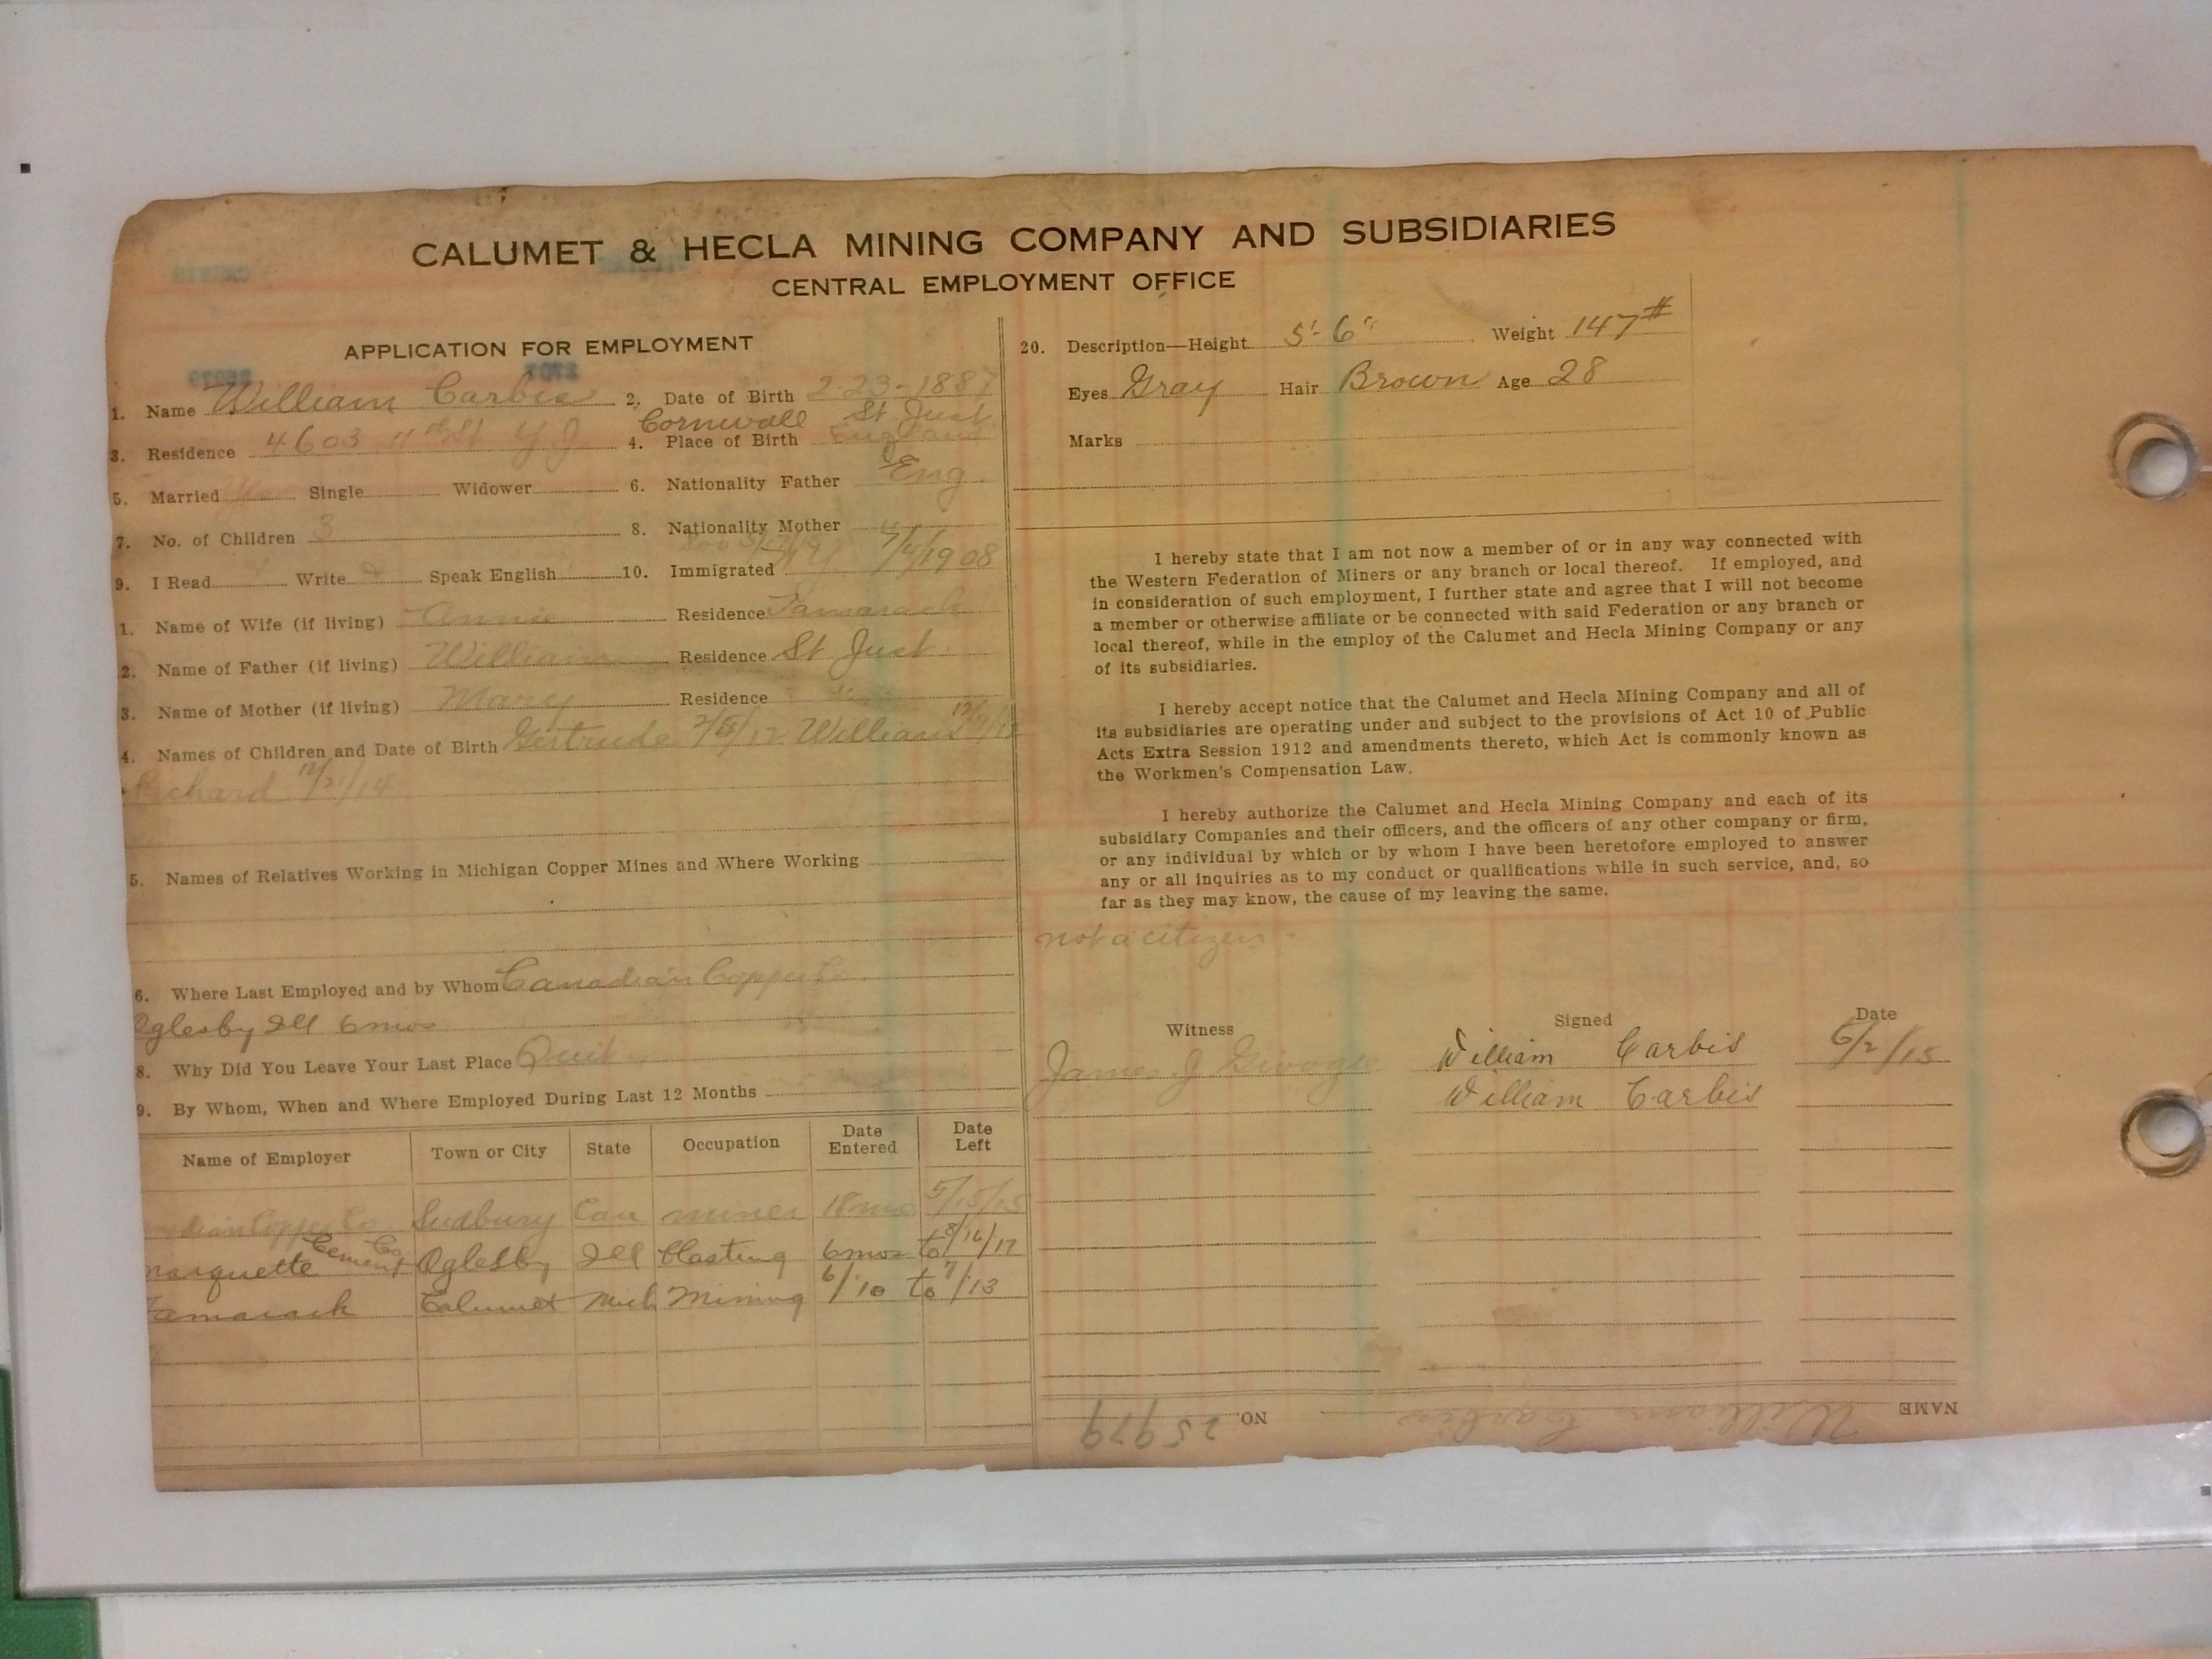 CALUMET & HECLA MINING COMPANY AND SUBSIDIARIES
CENTRAL EMPLOYMENT OFFICE
APPLICATION FOR EMPLOYMENT
1. Name William Carbis 2, Date of Birth 2-23-1887
Cornwall St Just
3. Residence 4603 11th St Y.J. 4. Place of Birth England
5. Married Yes Single Widower 6. Nationality Father Eng.
7. No. of Children 3 8. Nationality Mother "
9. I Read Write Speak English 10. Immigrated 7/4/1908
1. Name of Wife (if living) Annie Residence Tamarack
2. Name of Father (if living) William Residence St Just.
3. Name of Mother (if living) Mary Residence "
4. Names of Children and Date of Birth Gertrude William
Richard 12/21/14
5. Names of Relatives Working in Michigan Copper Mines and Where Working
6. Where Last Employed and by Whom Canadian Copper Co
Oglesby Ill 6mos
8. Why Did You Leave Your Last Place Quit
9. By Whom, When and Where Employed During Last 12 Months
Name of Employer Town or City State Occupation Date Entered Date Left
Copper Co Sudbury Can miner 18mo 5/15/15
Marquette Cement Co Oglesby Ill blasting 6mos to 8/16/17
Tamarack Calumet Mich Mining 6/10 to 7/13
20. Description—Height 5'-6" Weight 147#
Eyes Gray Hair Brown Age 28
Marks
I hereby state that I am not now a member of or in any way connected with
the Western Federation of Miners or any branch or local thereof. If employed, and
in consideration of such employment, I further state and agree that I will not become
a member or otherwise affiliate or be connected with said Federation or any branch or
local thereof, while in the employ of the Calumet and Hecla Mining Company or any
of its subsidiaries.
I hereby accept notice that the Calumet and Hecla Mining Company and all of
its subsidiaries are operating under and subject to the provisions of Act 10 of Public
Acts Extra Session 1912 and amendments thereto, which Act is commonly known as
the Workmen's Compensation Law.
I hereby authorize the Calumet and Hecla Mining Company and each of its
subsidiary Companies and their officers, and the officers of any other company or firm,
or any individual by which or by whom I have been heretofore employed to answer
any or all inquiries as to my conduct or qualifications while in such service, and, so
far as they may know, the cause of my leaving the same.
not a citizen.
Witness Signed Date
James J William Carbis 6/2/15
William Carbis
NAME William Carbis NO. 25979